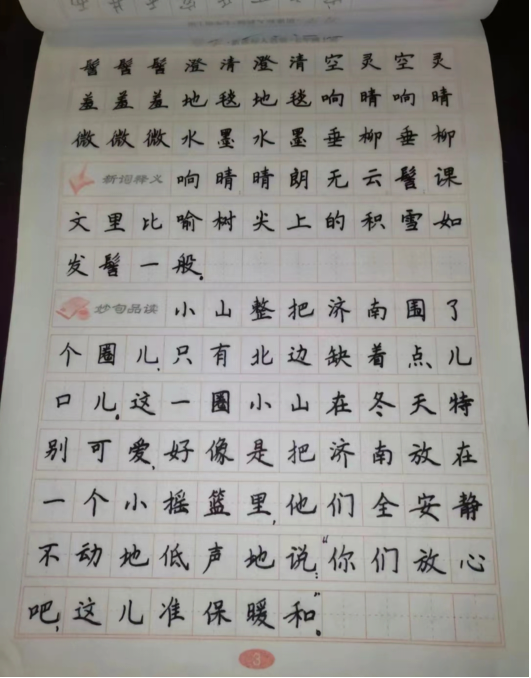 髻髻髻澄清澄清空灵空灵
羞羞羞地毯地毯响晴响晴
微微微水墨水墨垂柳垂柳
新词释义 响晴晴朗无云髻课
文里比喻树尖上的积雪如
发髻一般。
妙句品读 小山整把济南围了
个圈儿,只有北边缺着点儿
口儿。这一圈小山在冬天特
别可爱,好像是把济南放在
一个小摇篮里,他们全安静
不动地低声地说:“你们放心
吧,这儿准保暖和”。
3